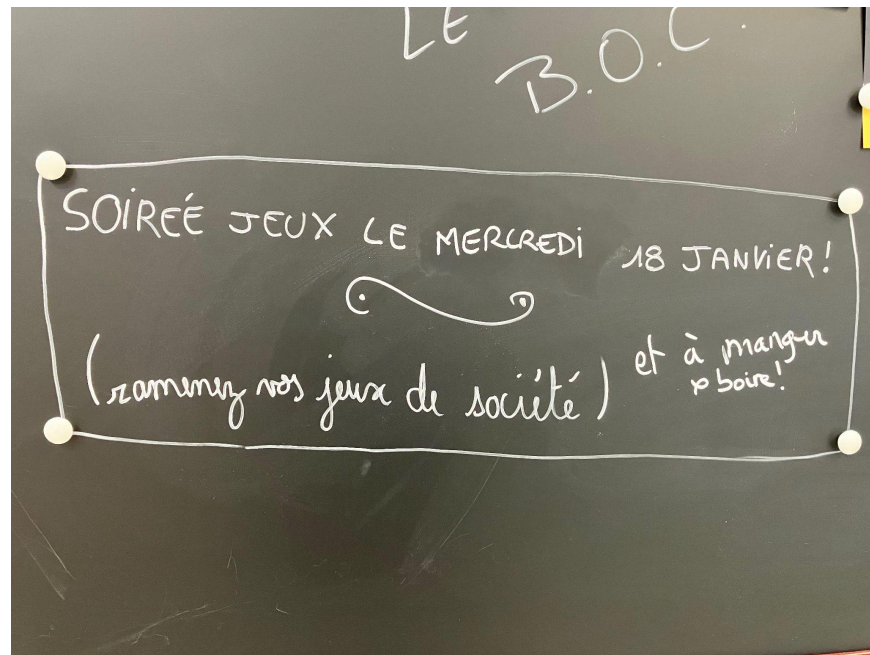 LE
B.O.C.
SOIREÉ JEUX LE MERCREDI 18 JANVIER!
(ramenez vos jeux de société) et à manger
boire!